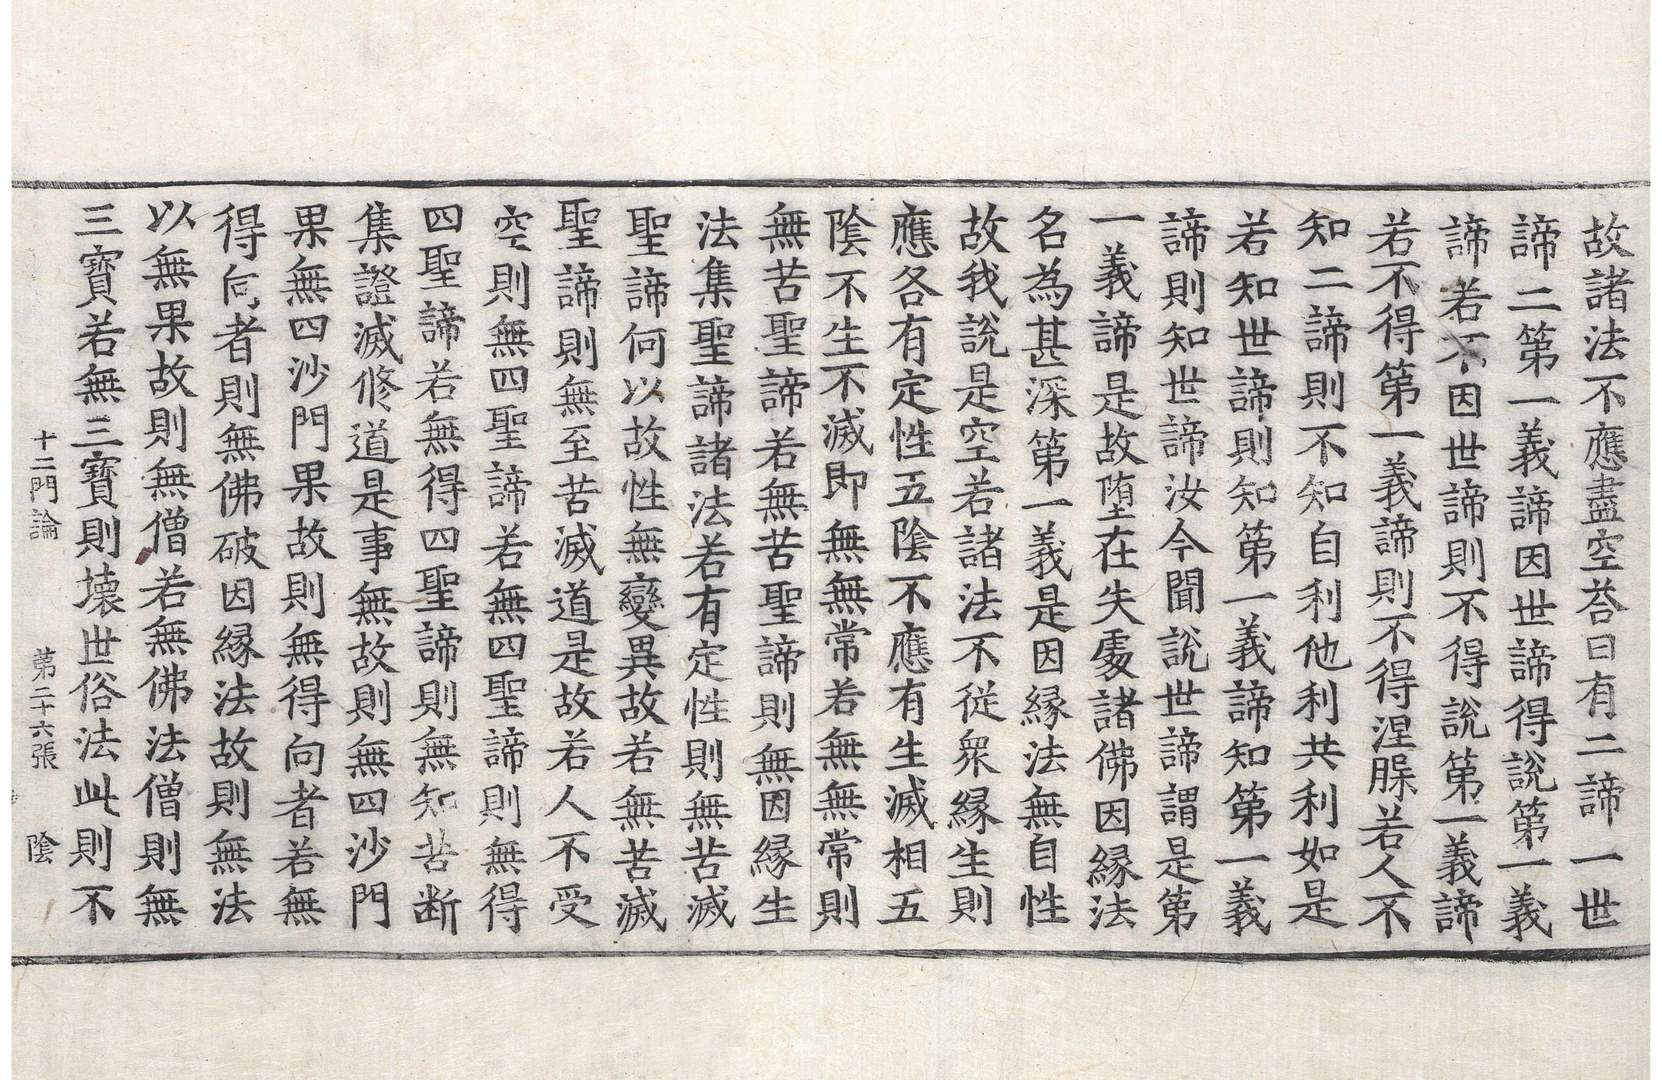 故諸法不應盡空荅曰有二諦一世
諦二第一義諦因世諦得說第一義
諦若不因世諦則不得說第一義諦
若不得第一義諦則不得涅槃若人不
知二諦則不知自利他利共利如是
若知世諦則知第一義諦知第一義
諦則知世諦汝今聞說世諦謂是第
一義諦是故墮在失處諸佛因緣法
名為甚深第一義是因緣法無自性
故我說是空若諸法不從衆緣生則
應各有定性五陰不應有生滅相五
陰不生不滅即無無常若無無常則
無苦聖諦若無苦聖諦則無因緣生
法集聖諦諸法若有定性則無苦滅
聖諦何以故性無變異故若無苦滅
聖諦則無至苦滅道是故若人不受
空則無四聖諦若無四聖諦則無得
四聖諦若無得四聖諦則無知苦断
集證滅修道是事無故則無四沙門
果無四沙門果故則無得向者若無
得向者則無佛破因緣法故則無法
以無果故則無僧若無佛法僧則無
三寶若無三寶則壞世俗法此則不
十二門論 第二十六張 陰